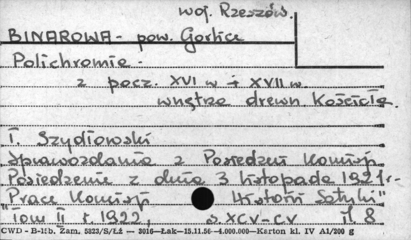 woj. Rzeszów.
BINAROWA - pow. Gorlice
Polichromie -
z pocz. XVI w i XVII w
wnętrze drewn. Kościoła.
T. Szydłowski
Sprawozdania z Posiedzeń Komisji
Posiedzenie z dnia 3 listopada 1921 r.-
"Prace Komisji Historii Sztuki"
Tom II r. 1922, s. XCV-CV il. 8
CWD - B-15b. Zam. 5823/S/Łź — 3016—Łak—15.11.56—4.000.000—Karton kl. IV A1/200 g